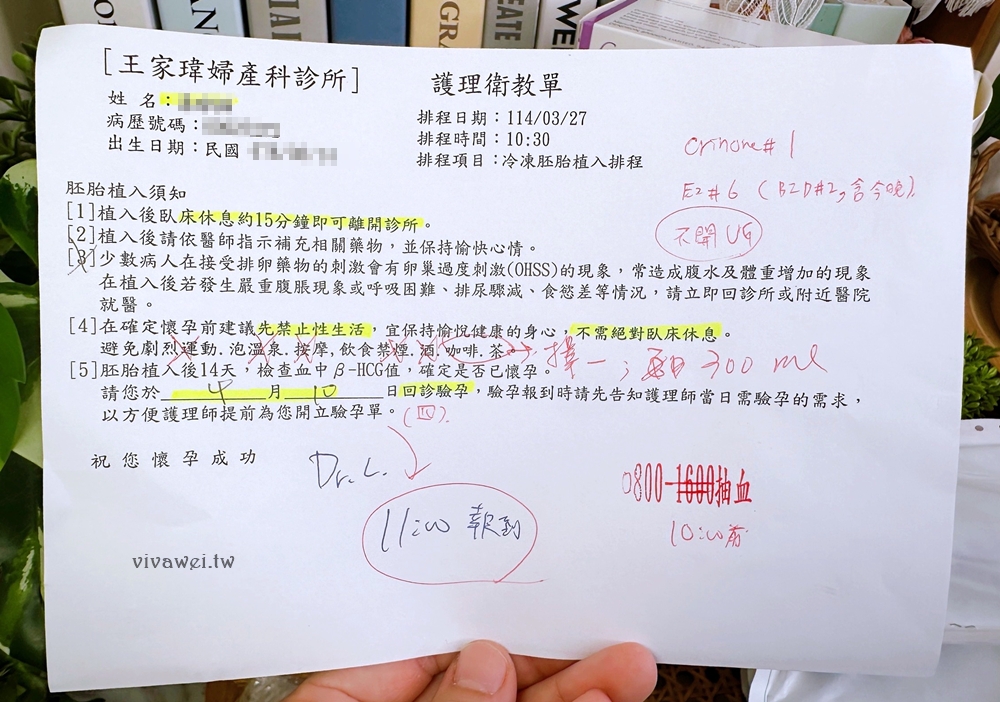 GRA
CREATE
WES
[王家瑋婦產科診所]
護理衛教單
姓 名：
病歷號碼：
出生日期：民國
排程日期：114/03/27
排程時間：10:30
排程項目：冷凍胚胎植入排程
crinone#1
E2#6 (BID#2,含今晚).
不開UG
胚胎植入須知
[1]植入後臥床休息約15分鐘即可離開診所。
[2]植入後請依醫師指示補充相關藥物，並保持愉快心情。
[3]少數病人在接受排卵藥物的刺激會有卵巢過度刺激(OHSS)的現象，常造成腹水及體重增加的現象
在植入後若發生嚴重腹脹現象或呼吸困難、排尿驟減、食慾差等情況，請立即回診所或附近醫院
就醫。
[4]在確定懷孕前建議先禁止性生活，宜保持愉悅健康的身心，不需絕對臥床休息。
避免劇烈運動.泡溫泉.按摩,飲食禁煙.酒.咖啡.茶。
擇一; 300 ml
[5]胚胎植入後14天，檢查血中β-HCG值，確定是否已懷孕。
請您於 4 月 10 日回診驗孕，驗孕報到時請先告知護理師當日需驗孕的需求，
以方便護理師提前為您開立驗孕單。(四).
祝您懷孕成功
Dr. L.
11:00 報到
0800-1600抽血
10:00前
vivawei.tw